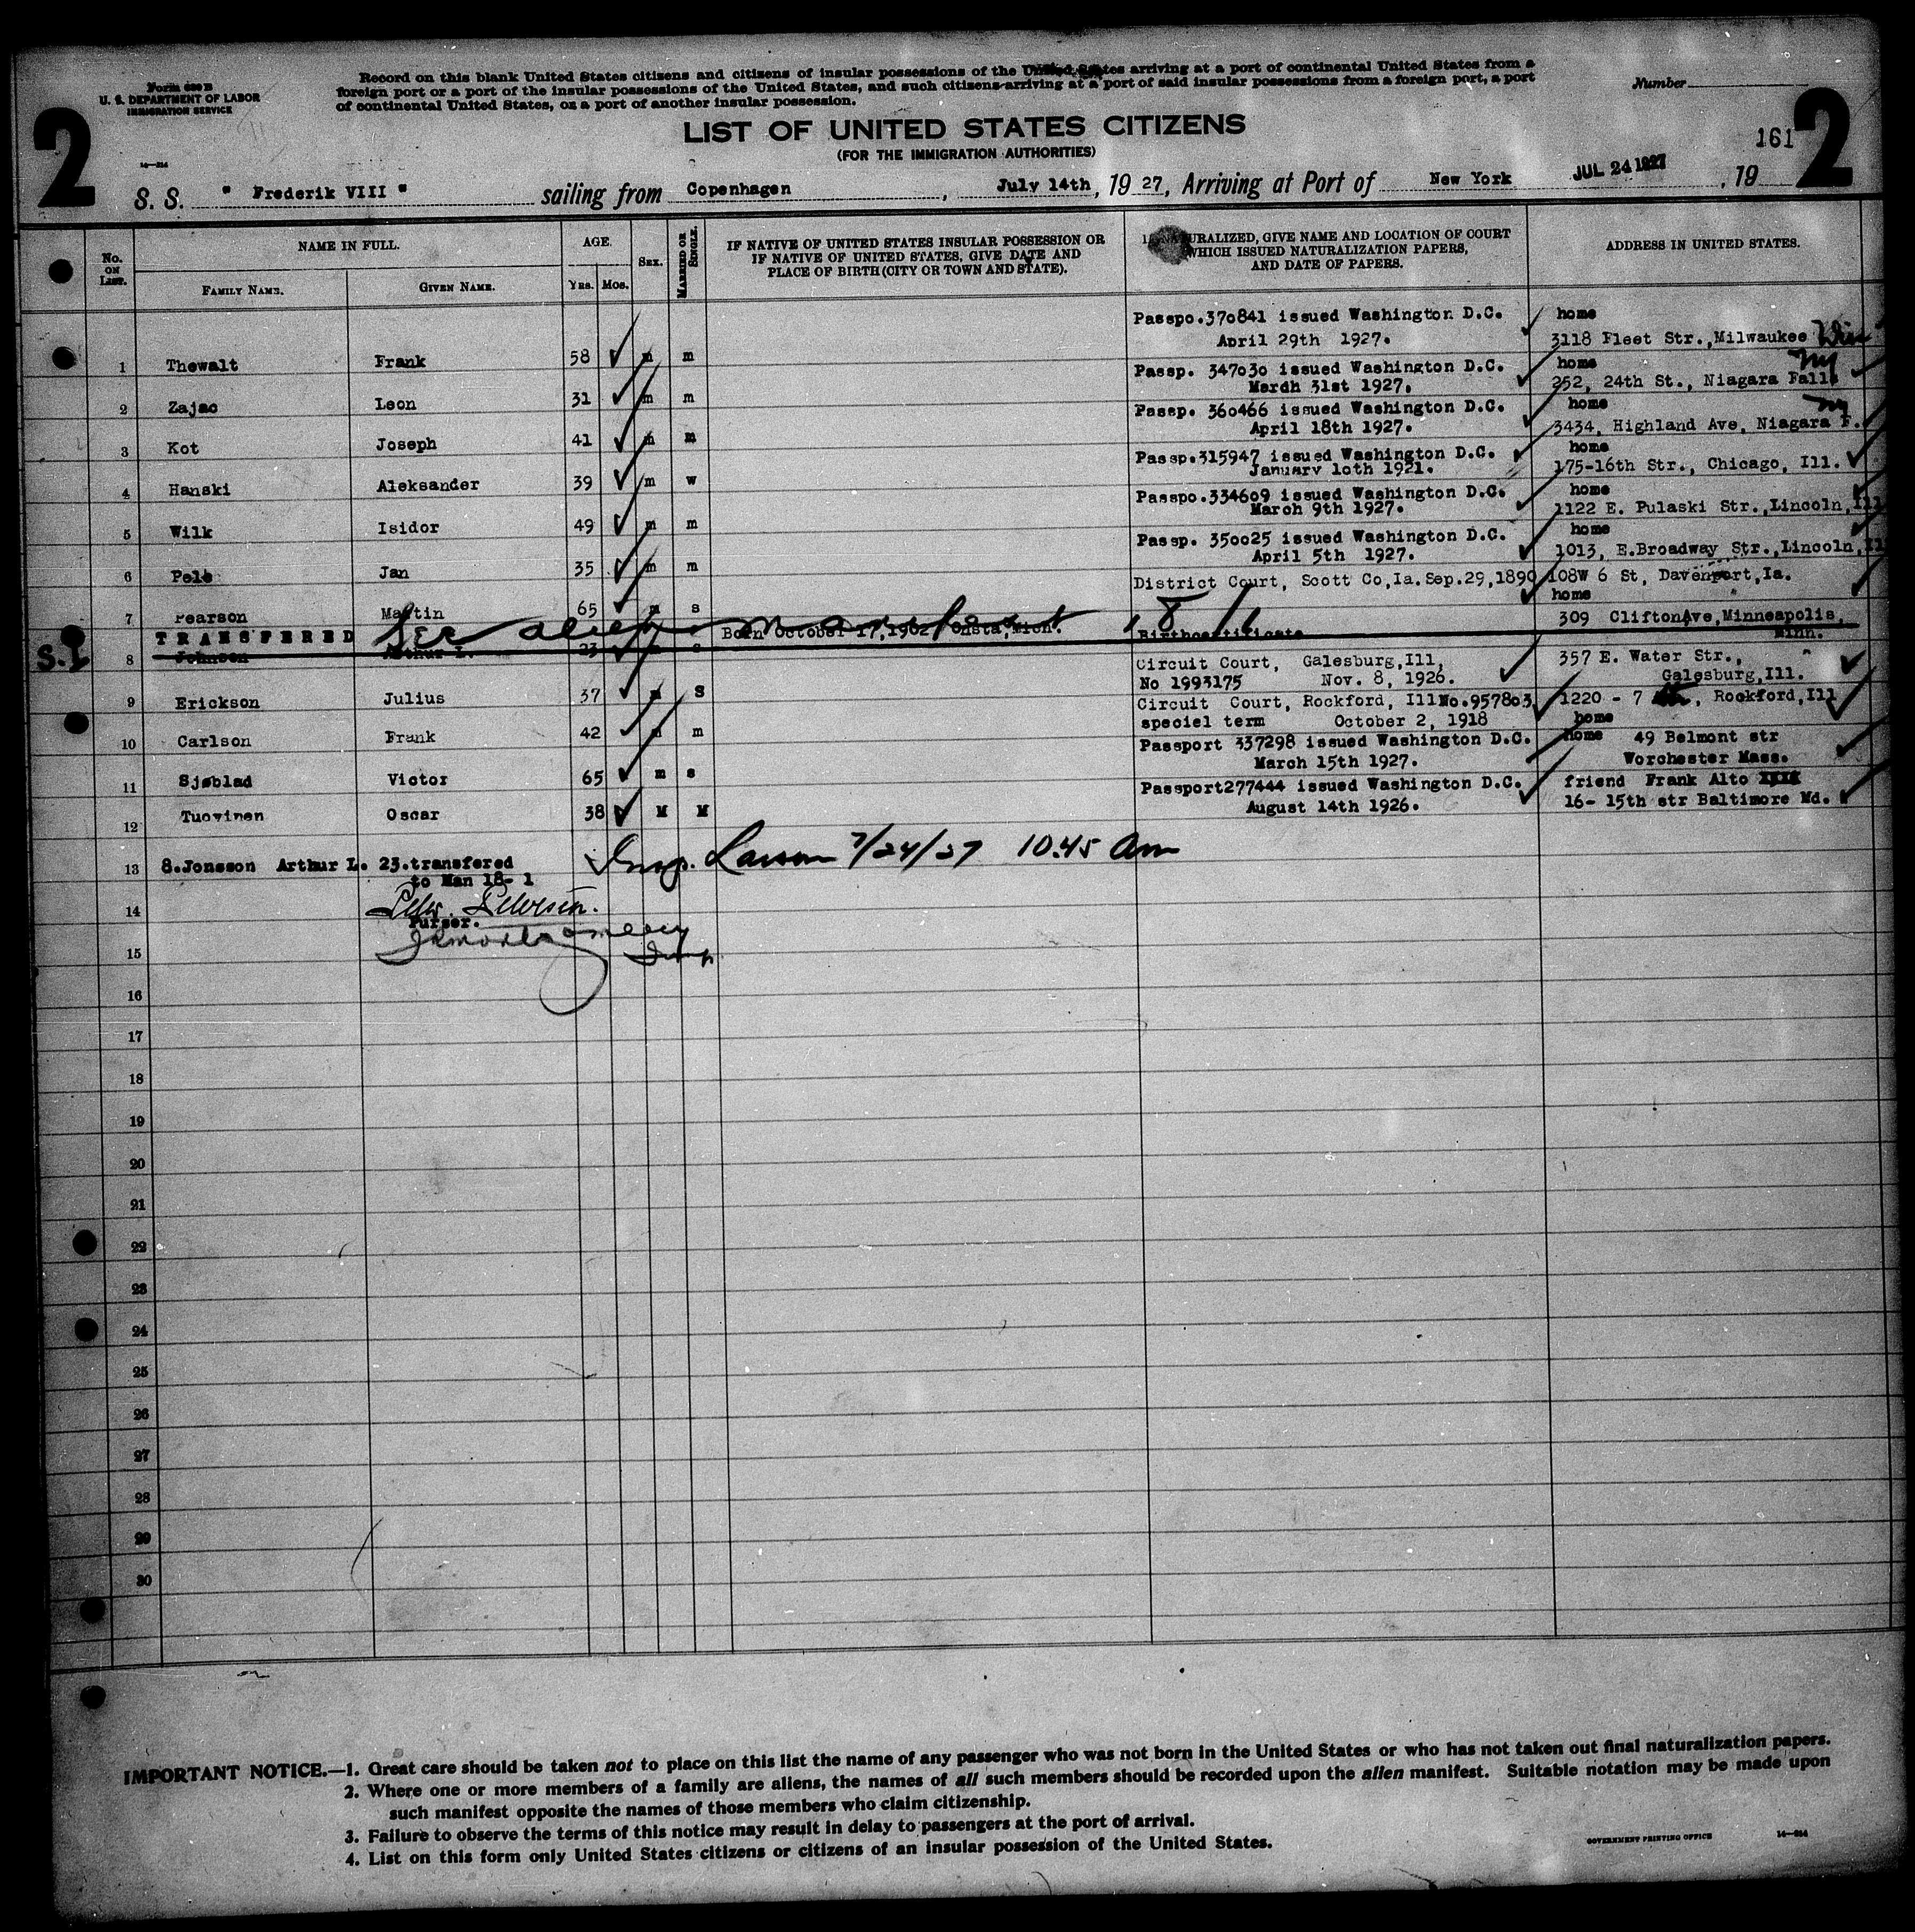 Form 630 B
U. S. DEPARTMENT OF LABOR
IMMIGRATION SERVICE
Record on this blank United States citizens and citizens of insular possessions of the United States arriving at a port of continental United States from a
foreign port or a port of the insular possessions of the United States, and such citizens arriving at a port of said insular possessions from a foreign port, a port
of continental United States, or a port of another insular possession.
Number
2
2
LIST OF UNITED STATES CITIZENS
(FOR THE IMMIGRATION AUTHORITIES)
161
14—214
S. S. " Frederik VIII " sailing from Copenhagen , July 14th , 19 27, Arriving at Port of New York JUL 24 1927 , 19
No. ON LIST. NAME IN FULL. AGE. SEX. MARRIED OR SINGLE. IF NATIVE OF UNITED STATES INSULAR POSSESSION OR IF NATIVE OF UNITED STATES, GIVE DATE AND PLACE OF BIRTH (CITY OR TOWN AND STATE). NATURALIZED, GIVE NAME AND LOCATION OF COURT WHICH ISSUED NATURALIZATION PAPERS, AND DATE OF PAPERS. ADDRESS IN UNITED STATES.
FAMILY NAME. GIVEN NAME. YRS. MOS.
Passpo.370841 issued Washington D.C. home
April 29th 1927. 3118 Fleet Str.,Milwaukee Wis
1 Thewalt Frank 58 m m
Passp. 347030 issued Washington D.C. home NY
Mardh 31st 1927. 252, 24th St., Niagara Falls
2 Zajac Leon 31 m m
Passp. 360466 issued Washington D.C. home NY
April 18th 1927. 3434, Highland Ave, Niagara F.
3 Kot Joseph 41 m m
Passp.315947 issued Washington D.C. home
January 10th 1921. 175-16th Str., Chicago, Ill.
4 Hanski Aleksander 39 m w
Passpo.334609 issued Washington D.C. home
March 9th 1927. 1122 E. Pulaski Str.,Lincoln,Ill
5 Wilk Isidor 49 m m
Passp. 350025 issued Washington D.C. home
April 5th 1927. 1013, E.Broadway Str.,Lincoln,Ill
6 Pelc Jan 35 m m
District Court, Scott Co,Ia.Sep.29,1890 108W 6 St, Davenport,Ia.
home
7 Pearson Martin 65 m s
309 CliftonAve,Minneapolis,
Minn.
TRANSFERRED See alien manifest 18/1
Born October 17,1902 Birthcertificate
S.I. 8 Johnson Arthur L. 23 m s
Circuit Court, Galesburg,Ill, 357 E. Water Str.,
No 1993175 Nov. 8, 1926. Galesburg,Ill.
9 Erickson Julius 37 m S
Circuit Court, Rockford, IllNo.957803 1220 - 7 , Rockford,Ill
speciel term October 2, 1918 home
10 Carlson Frank 42 m m
Passport 337298 issued Washington D.C. home 49 Belmont str
March 15th 1927. Worchester Mass.
11 Sjøblad Victor 65 m s
Passport277444 issued Washington D.C. friend Frank Alto XXXX
August 14th 1926. 16- 15th str Baltimore Md.
12 Tuovinen Oscar 38 M M
13 8.Jonsson Arthur L. 23.transfered
to Man 18- 1
Insp. Larson 7/24/27 10.45 Am
14
Purser.
15 JR Montgomery
Insp
16
17
18
19
20
21
22
23
24
25
26
27
28
29
30
IMPORTANT NOTICE.—1. Great care should be taken not to place on this list the name of any passenger who was not born in the United States or who has not taken out final naturalization papers.
2. Where one or more members of a family are aliens, the names of all such members should be recorded upon the alien manifest. Suitable notation may be made upon
such manifest opposite the names of those members who claim citizenship.
3. Failure to observe the terms of this notice may result in delay to passengers at the port of arrival.
4. List on this form only United States citizens or citizens of an insular possession of the United States.
GOVERNMENT PRINTING OFFICE 14—214